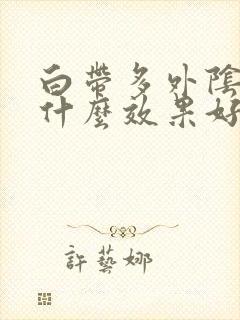 白帶多外陰
什麼效果好
許藝娜